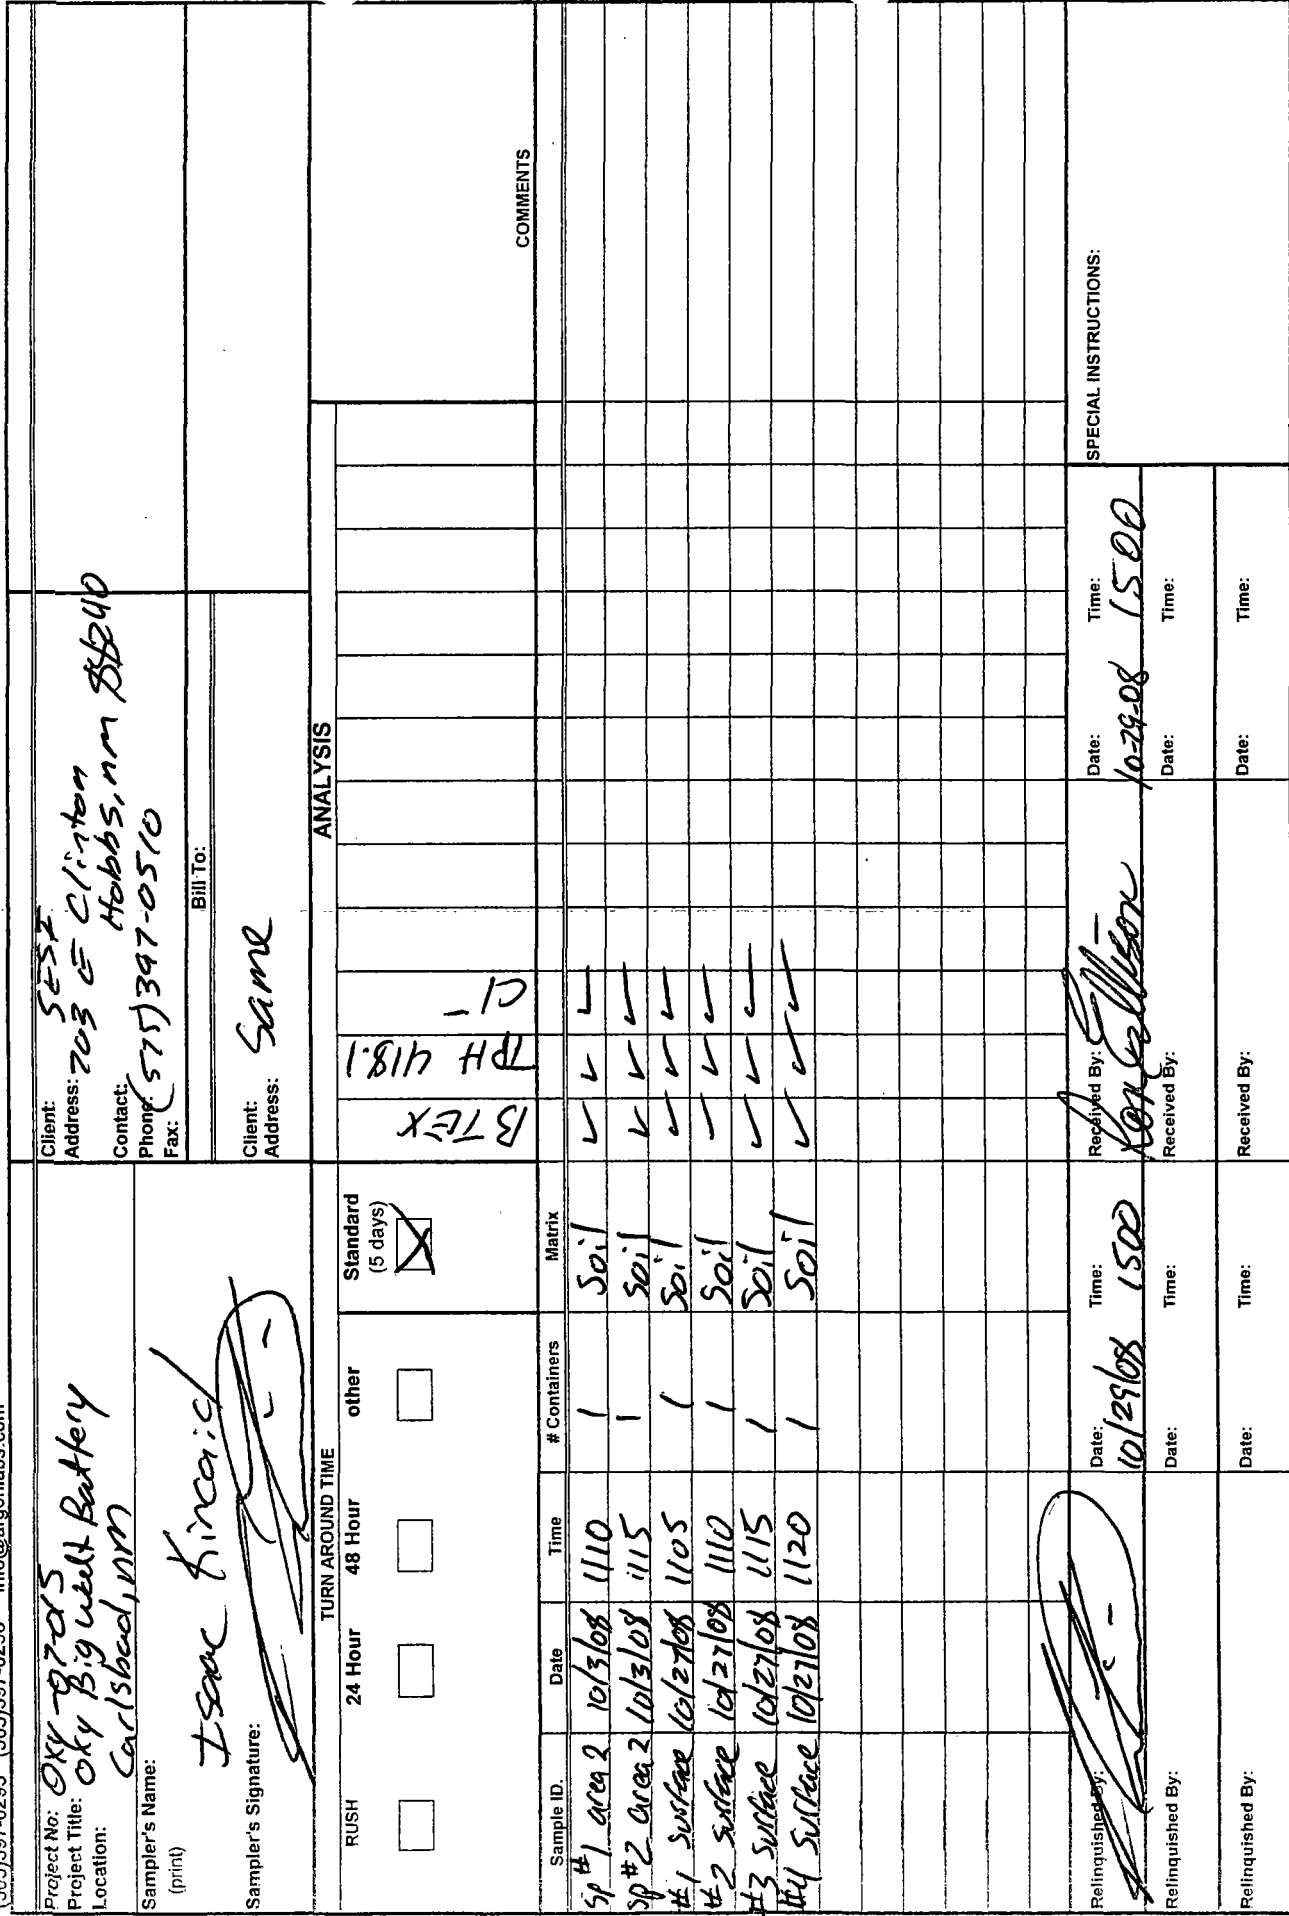 Project No: OXY-07-015
Project Title: Oxy Big Walt Battery
Location: Carlsbad, nm
Sampler's Name:
(print)
Isaac Kincaid
Sampler's Signature:
Client: SESI
Address: 703 E Clinton
Hobbs, nm 88240
Contact:
Phone: (575) 397-0510
Fax:
Bill To:
Client: Same
Address:
TURN AROUND TIME
RUSH 24 Hour 48 Hour other Standard
(5 days)
ANALYSIS
BTEX
TPH 418.1
Cl-
COMMENTS
Sample ID. Date Time # Containers Matrix
Sp #1 area 2 10/3/08 1110 1 Soil ✓ ✓ ✓
Sp #2 area 2 10/3/08 1115 1 Soil ✓ ✓ ✓
#1 Surface 10/27/08 1105 1 Soil ✓ ✓ ✓
#2 Surface 10/27/08 1110 1 Soil ✓ ✓ ✓
#3 Surface 10/27/08 1115 1 Soil ✓ ✓ ✓
#4 Surface 10/27/08 1120 1 Soil ✓ ✓ ✓
Relinquished By: Date: 10/29/08 Time: 1500 Received By: Ellison Date: 10-29-08 Time: 1500
Relinquished By: Date: Time: Received By: Date: Time:
Relinquished By: Date: Time: Received By: Date: Time:
SPECIAL INSTRUCTIONS: